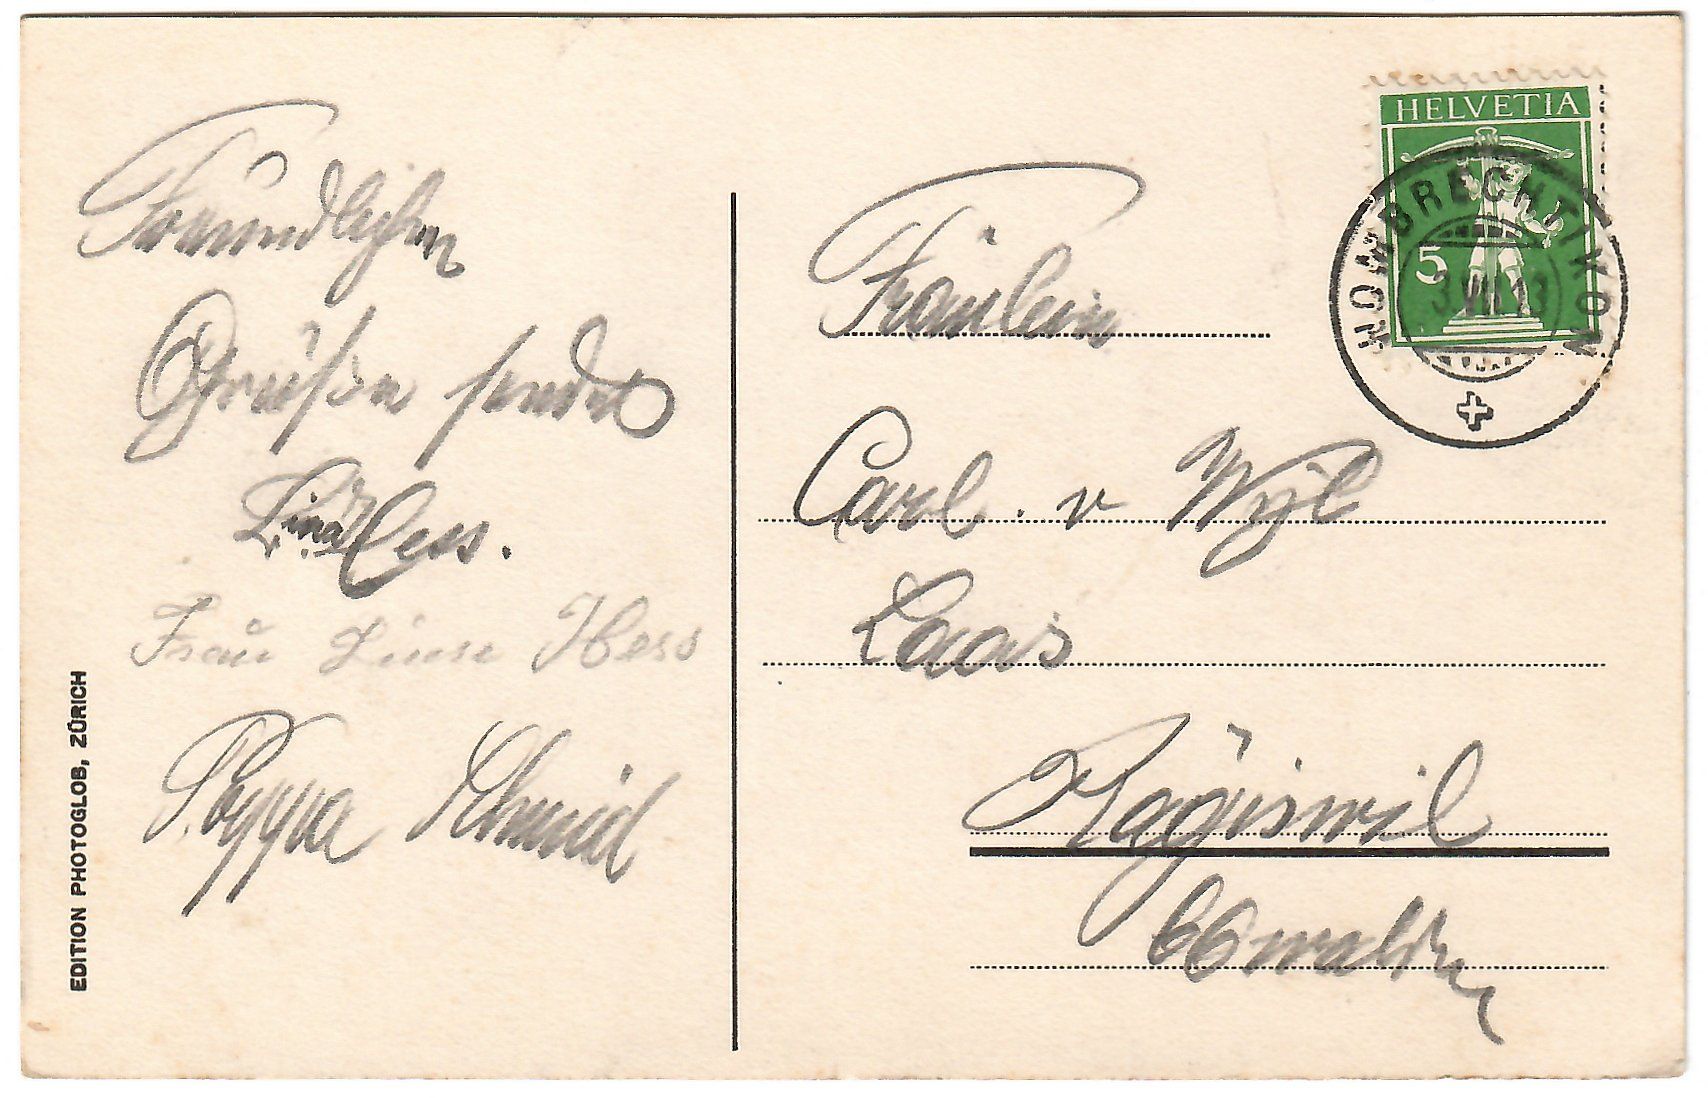 Freundlichen
Grüßen sendet
Lina Hess.
Frau Hess
Schmid
EDITION PHOTOGLOB, ZÜRICH
HELVETIA
5
HOMBRECHTIKON
Fräulein
Carl. v Wyl
Kägiswil